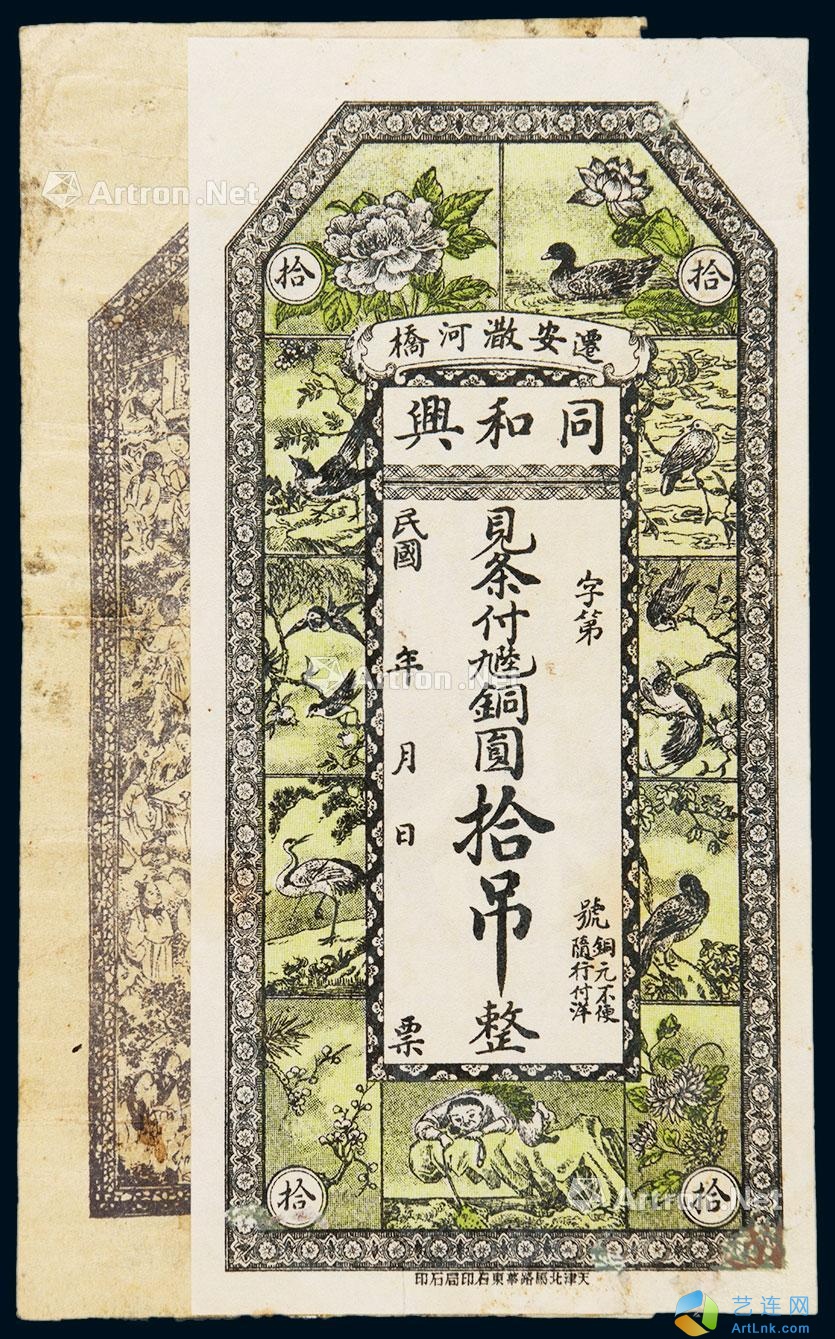 拾
拾
遷安潵河橋
同和興
字第
號
銅元不便
隨行付洋
見条付九陸銅圓拾吊整
民國
年
月
日
票
拾
拾
天津北馬路華東石印局石印
Artron.Net
Artron.Net
Artron.Net
艺连网
ArtLnk.com